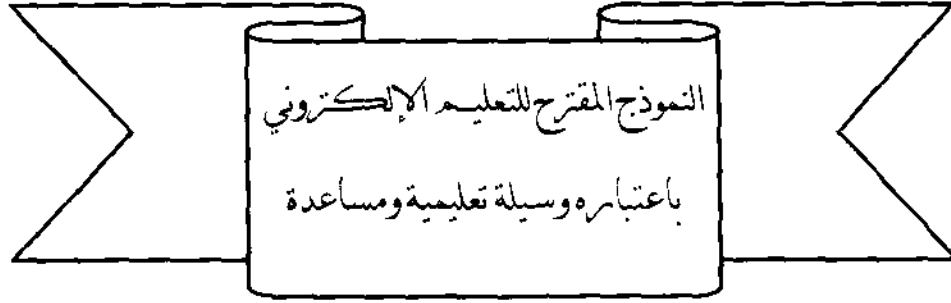 النموذج المقترح للتعليم الإلكتروني
باعتباره وسيلة تعليمية ومساعدة